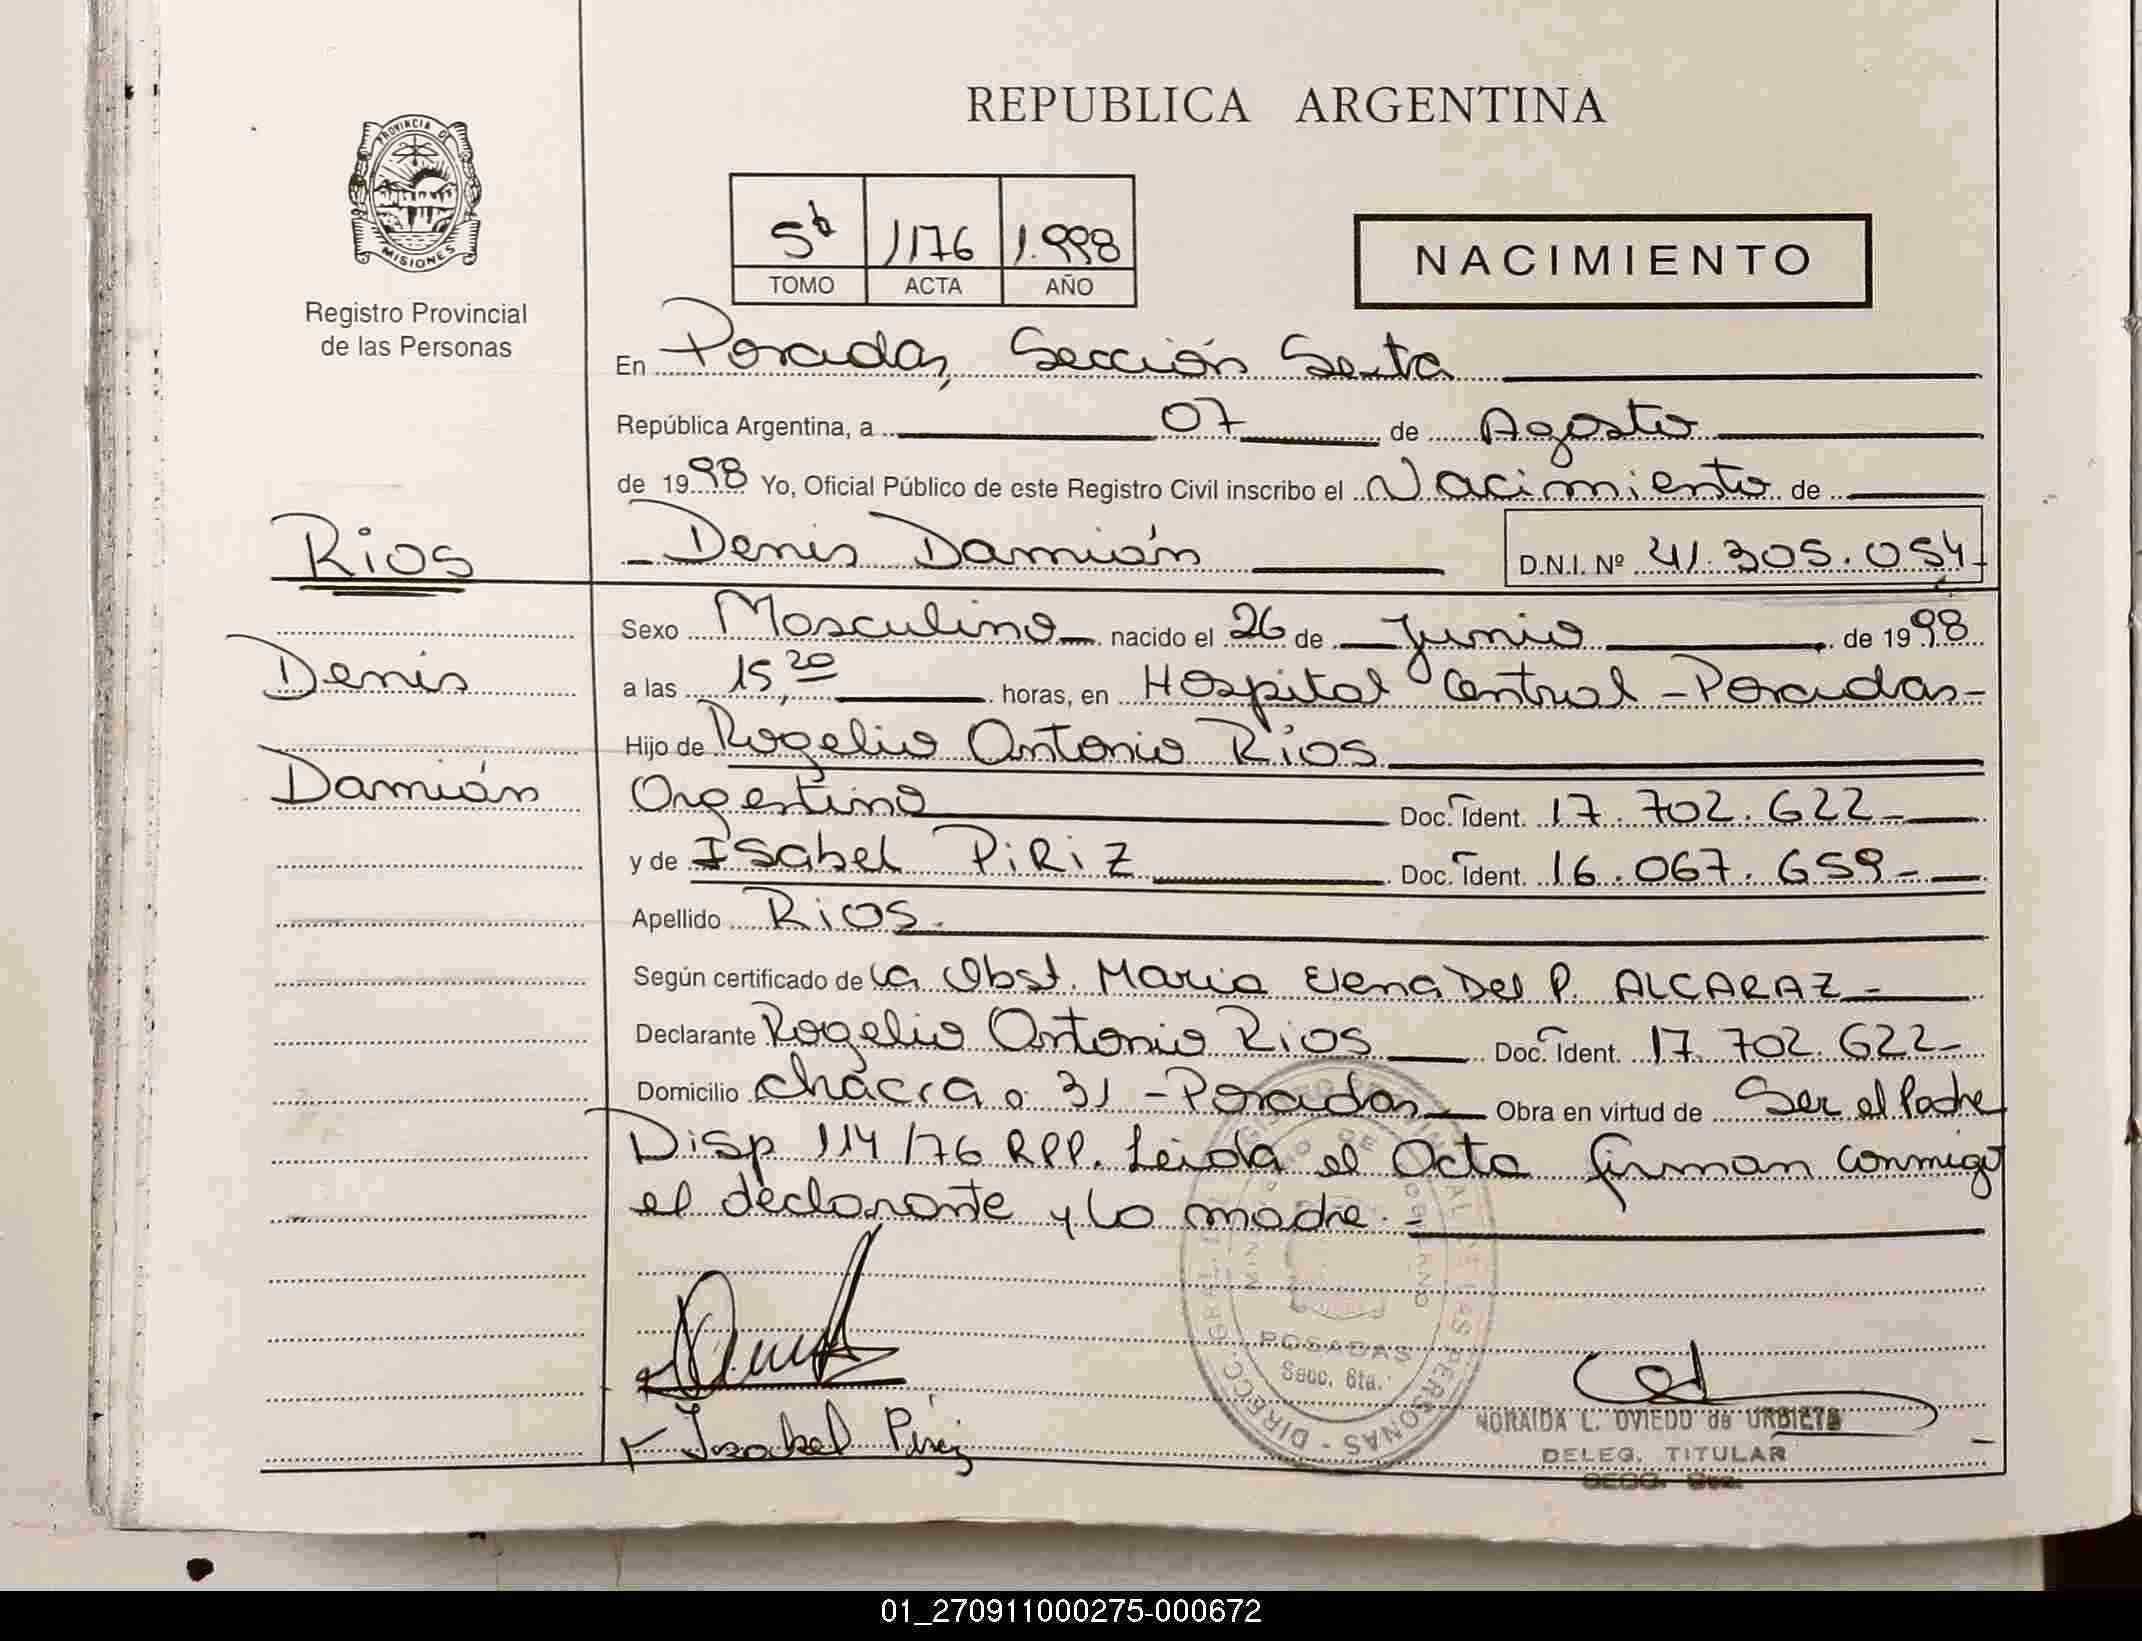 REPUBLICA ARGENTINA
PROVINCIA DE
MISIONES
Registro Provincial
de las Personas
5º 1176 1.998
TOMO ACTA AÑO
NACIMIENTO
En Posadas, Sección Sexta
República Argentina, a 07 de Agosto
de 1998 Yo, Oficial Público de este Registro Civil inscribo el Nacimiento de
Rios
Denis Damián D.N.I. Nº 41.305.054
Denis
Damián
Sexo Masculino nacido el 26 de Junio de 1998
a las 15,20 horas, en Hospital Central - Posadas -
Hijo de Rogelio Antonio Rios
Argentino Doc. Ident. 17.702.622 -
y de Isabel PiRiZ Doc. Ident. 16.067.659 -
Apellido Rios.
Según certificado de la Obst. Maria Elena Del P. ALCARAZ -
Declarante Rogelio Antonio Rios Doc. Ident. 17.702.622 -
Domicilio chacra 31 - Posadas Obra en virtud de Ser el Padre
Disp 114/76 RPP. Leida el Acta firman conmigo
el declarante y la madre. -
DIRECC. GRAL. DEL REGISTRO PROVINCIAL DE LAS PERSONAS
POSADAS
Secc. 6ta.
Isabel Piriz
NORAIDA L. OVIEDO de URBIETA
DELEG. TITULAR
SECC. 6ta.
01_270911000275-000672